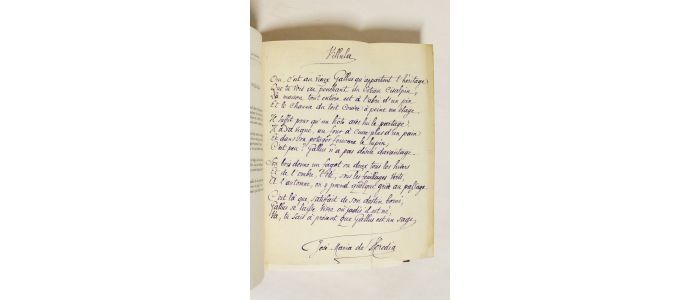 Villula
Oui, c'est au vieux Gallus qu'appartient l'héritage
Que tu vois au penchant du coteau cisalpin ;
La maison tout entière est à l'abri d'un pin
Et le chaume du toit couvre à peine un étage.
Il suffit pour qu'un hôte avec lui le partage.
Il a sa vigne, un four à cuire plus d'un pain,
Et dans son potager foisonne le lupin.
C'est peu ? Gallus n'a pas désiré davantage.
Son bois donne un fagot ou deux tous les hivers
Et de l'ombre, l'été, sous les feuillages verts ;
À l'automne, on y prend quelque grive au passage.
C'est là que, satisfait de son destin borné,
Gallus achève de vivre où jadis il est né.
Va, tu sais à présent que Gallus est un sage.
José-Maria de Heredia